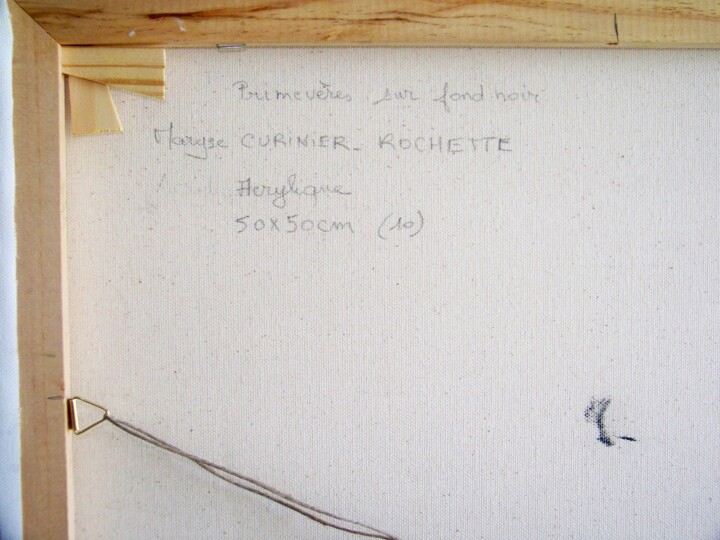 Primevères sur fond noir
Maryse CURINIER_ ROCHETTE
Acrylique
50x50cm (10)